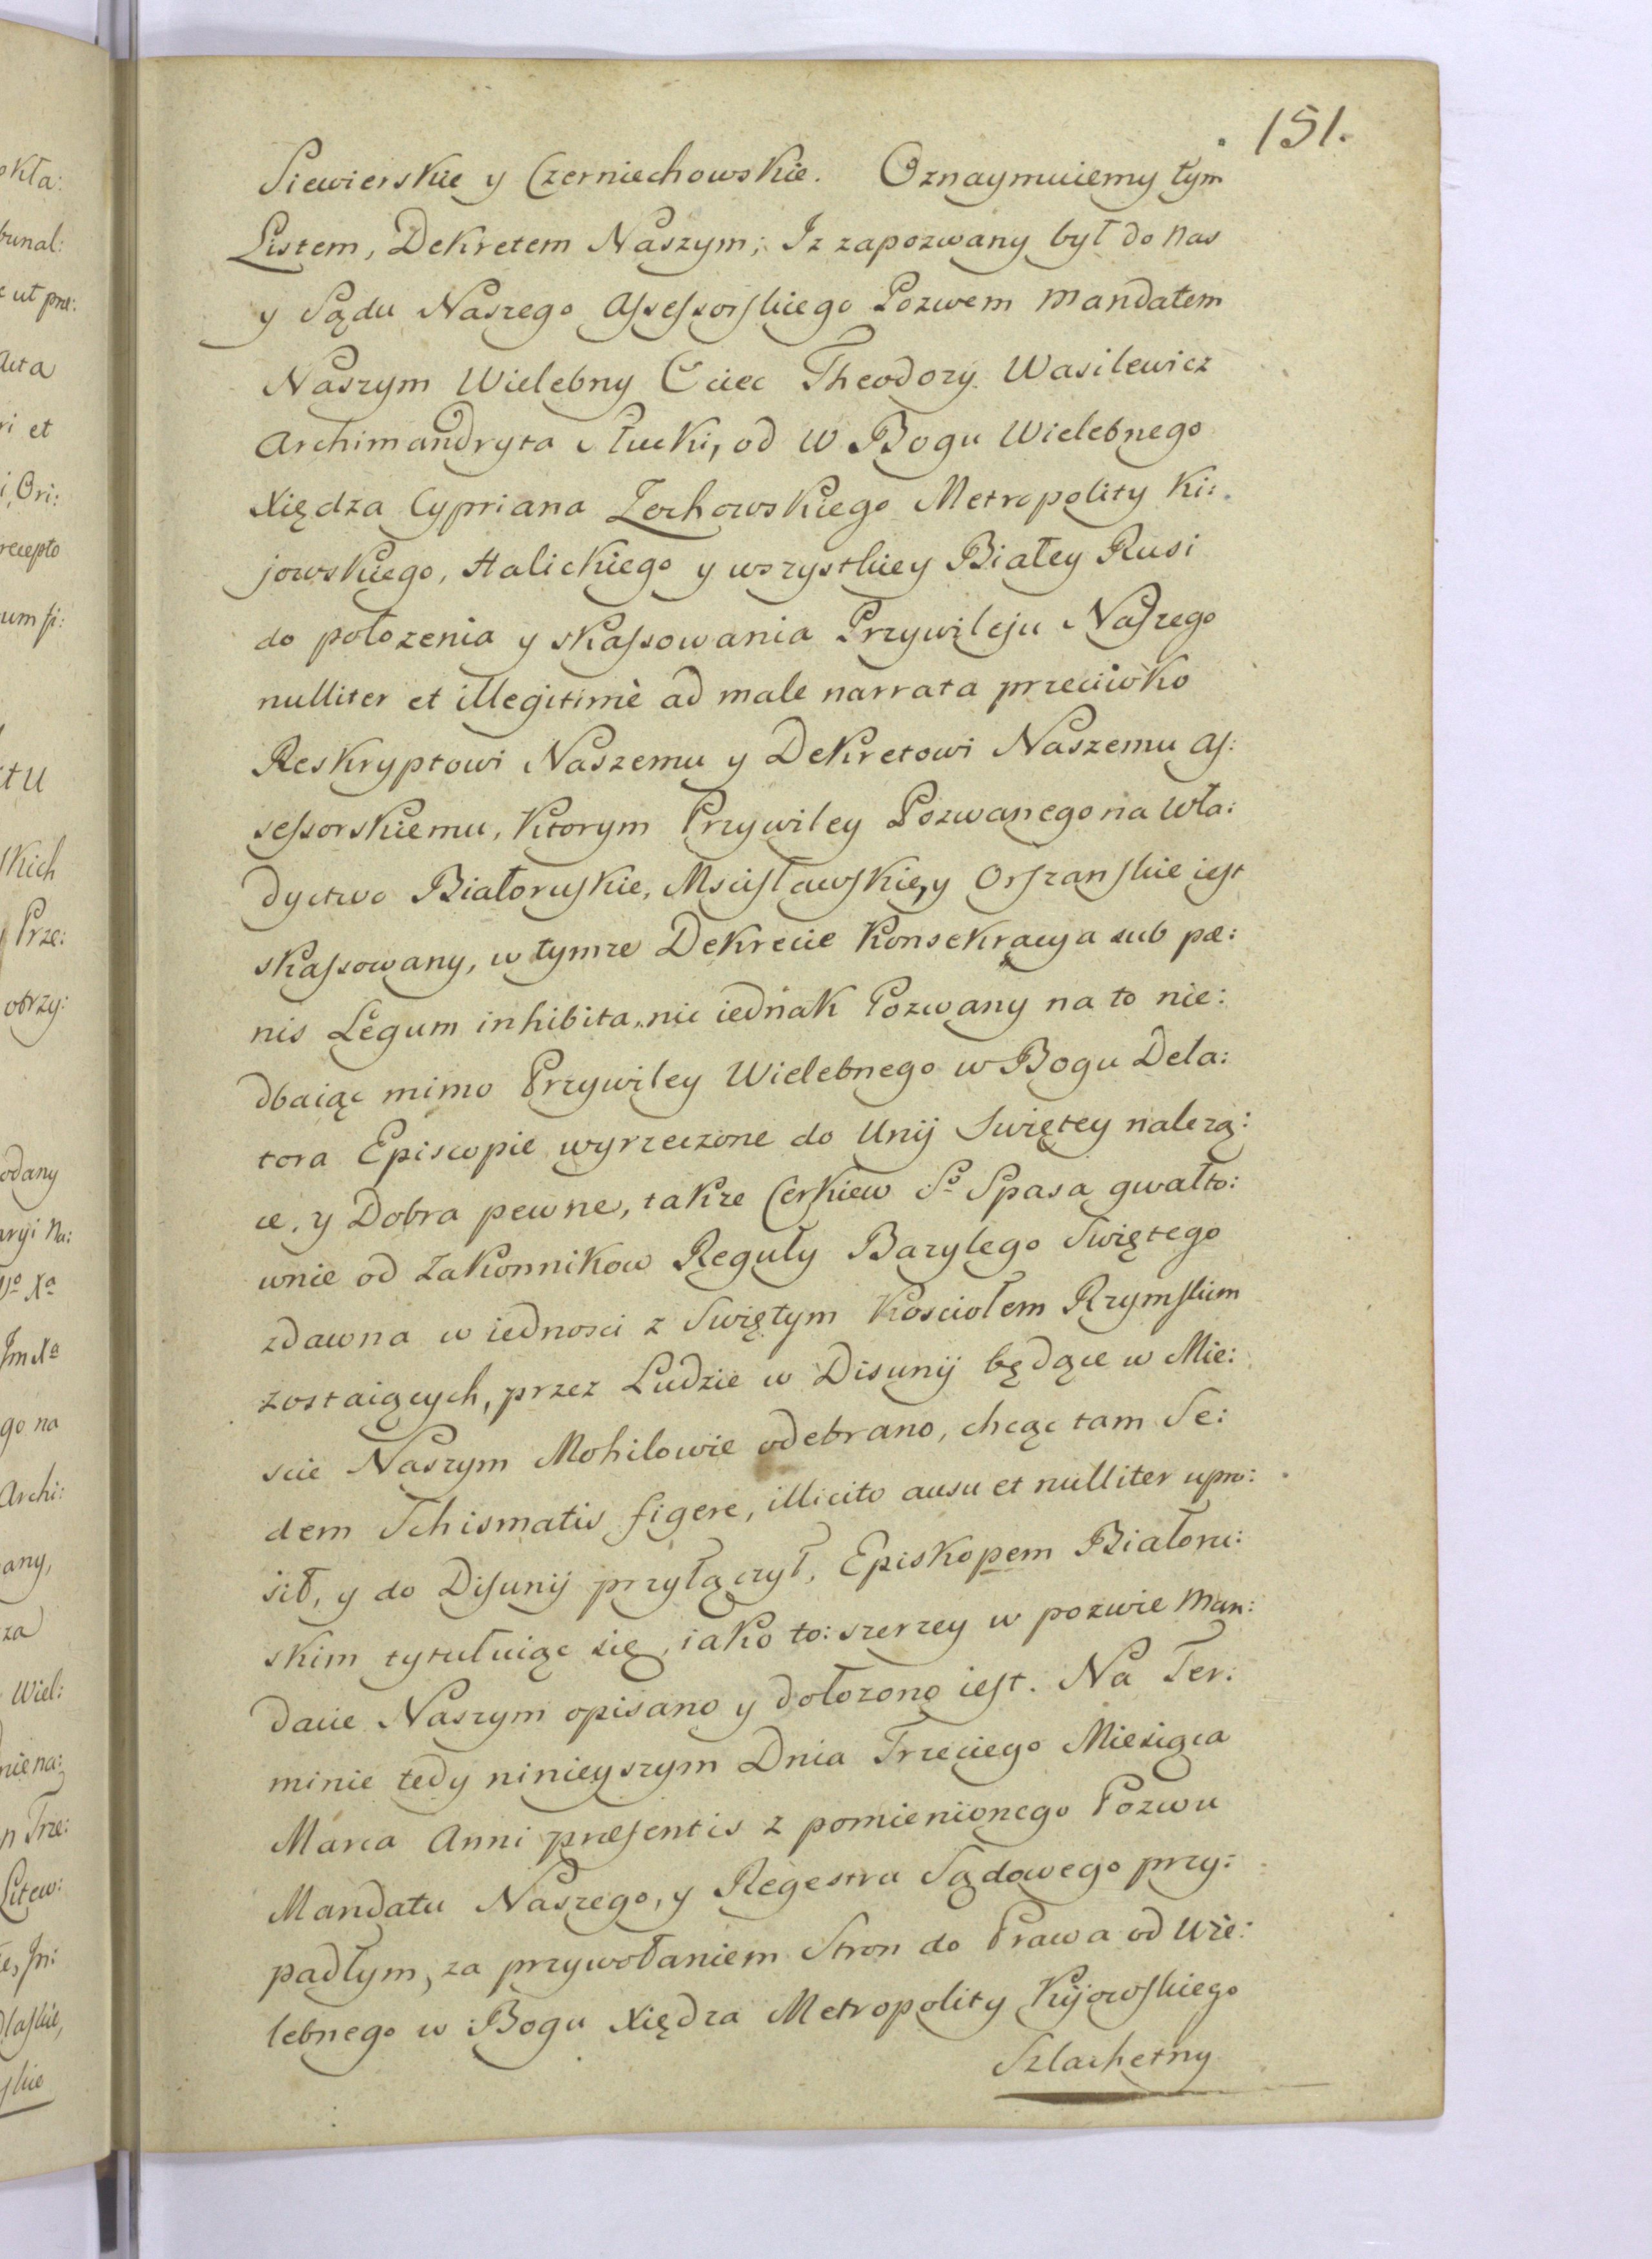 151.
Siewierskie y Czerniechowskie. Oznaymuiemy tym
Listem, Dekretem Naszym; Iz zapozwany był do nas
y Sądu Naszego Assessorskiego Pozwem Mandatem
Naszym Wielebny Ociec Theodozy Wasilewicz
Archimandryta Słucki, od W Bogu Wielebnego
Xiędza Cypriana Zochowskiego Metropolity Ki:
jowskiego, Halickiego y wszystkiey Białey Rusi
do położenia y skassowania Przywileju Naszego
nulliter et illegitimè ad male narrata przeciwko
Reskryptowi Naszemu y Dekretowi Naszemu As:
sessorskiemu, Ktorym Przywiley Pozwanego na Wła:
dyctwo Białoruskie, Mscisławskie, y Orszanskie iest
skassowany, w tymze Dekrecie Konsekracya sub pæ:
nis Legum inhibita, nic iednak Pozwany na to nie:
dbaiąc mimo Przywiley Wielebnego w Bogu Dela:
tora Episcopie wyrzeczone do Unij Swiętey nalezą:
ce, y Dobra pewne, takze Cerkiew So Spasa gwałto:
wnie od Zakonnikow Reguły Bazylego Swiętego
zdawna w iednosci z Swiętym Kosciołem Rzymskim
zostaiących, przez Ludzie w Disunij będące w Mie:
scie Naszym Mohilowie odebrano, chcąc tam Se:
dem Schismatis figere, illicito ausu et nulliter upro:
sił, y do Disunij przyłączył, Episkopem Białoru:
skim tytułuiąc się, iako to: szerzey w pozwie Man:
dacie Naszym opisano y dołozono iest. Na Ter:
minie tedy ninieyszym Dnia Trzeciego Miesiąca
Marca Anni præsentis z pomienionego Pozwu
Mandatu Naszego, y Regestru Sądowego przy:
padłym, za przywołaniem Stron do Prawa od Wie:
lebnego w Bogu Xiędza Metropolity Kijowskiego
Szlachetny
okła:
bunal:
ut præ:
Acta
ri et
i, Ori:
recepto
um si:
skich
Prze:
otrzy:
odany
go na
Archi:
any,
za
Wiel:
nie na:
Trze:
Litew: